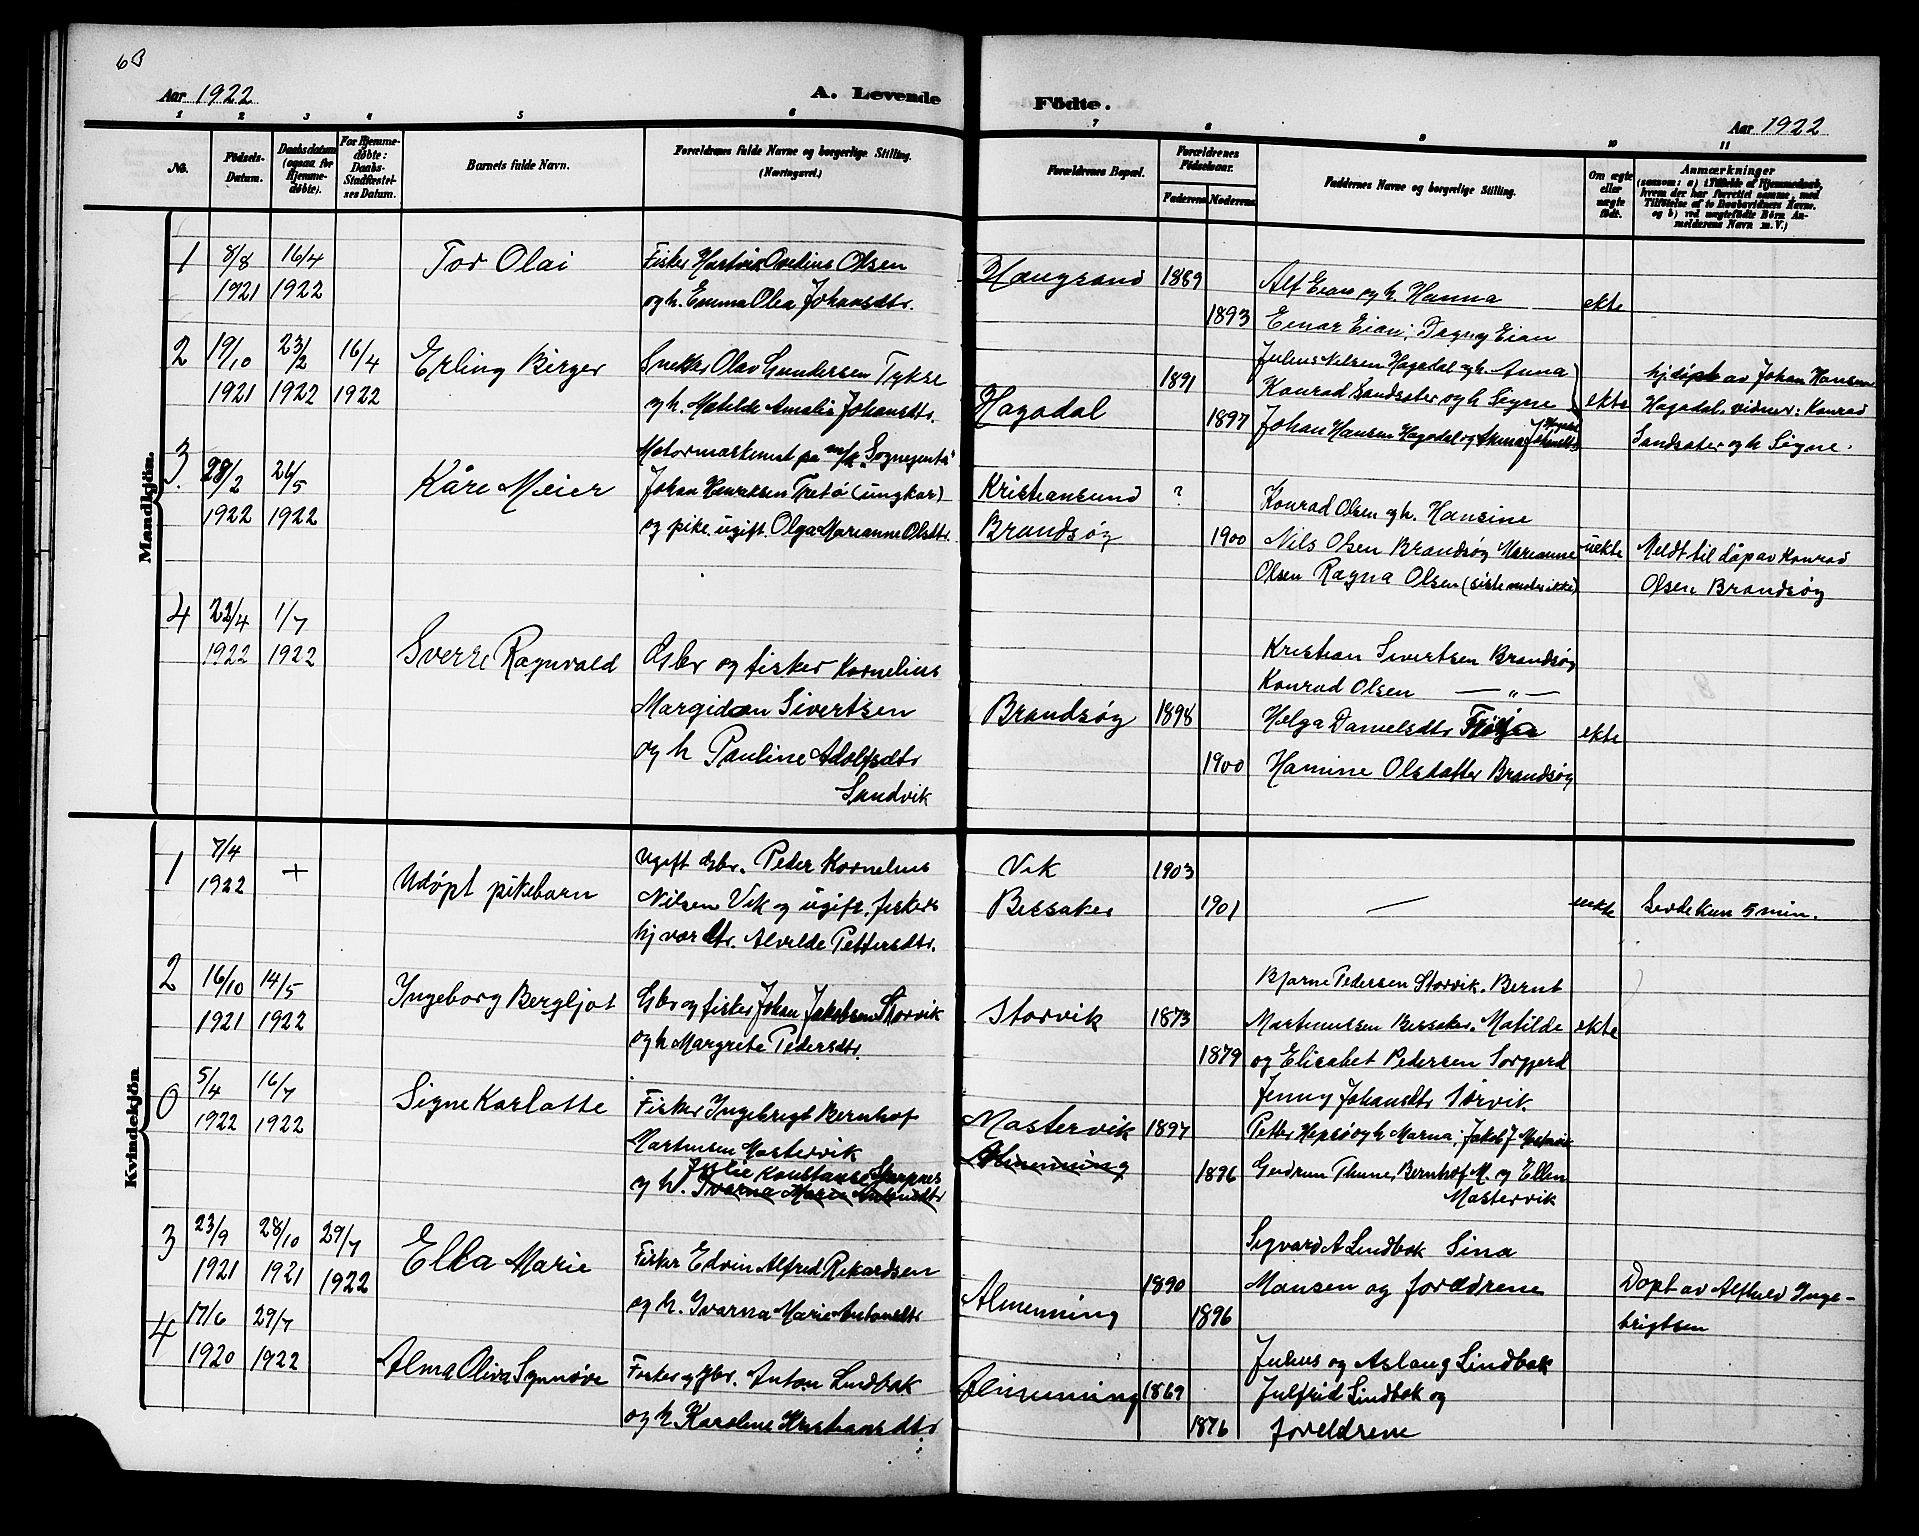 63
Aar 1922
A. Levende
Födte.
Aar 1922
1 2 3 4 5 6 7 8 9 10 11
No.
Födsels-Datum.
Daabsdatum (ogsaa for Hjemmedøbte).
For Hjemmedøbte: Daabs-Stadfæstelses Datum.
Barnets fulde Navn.
Forældrenes fulde Navne og borgerlige Stilling. (Næringsvei.)
Forældrenes Bopæl.
Forældrenes Födselsaar.
Faderens Moderens
Faddernes Navne og borgerlige Stilling.
Om ægte eller uægte födt.
Anmærkninger
(saasom: a) i Tilfælde af Hjemmedaab, hvem der har forrettet samme, med Tilföielse af to Daabsvidners Navne. og b) ved uægtefödte Börn Anmelderens Navn m. V.)
Mandkjön.
1 8/8 1921 16/4 1922
Tor Olai
Fisker Hartvik Ovedius Olsen
og h. Emma Olea Johansdtr.
Haugsand 1889
1893
Alf Eian og h. Hanna
Einar Eian; Dagny Eian
ekte
2 19/10 1921 23/2 1922 16/4 1922
Erling Birger
Snekker Olav Gundersen Tykse
og h. Matilde Amalie Johansdtr.
Hagodal 1891
1897
Julius Nilsen Hagedal og h. Anna
Konrad Sandsæter og h Signe
Johan Hansen Hagodal og Anna Johansdtr
ekte
hj.døpt av Johan Hansen
Hagodal. vidner: Konrad
Sandsæter og h Signe.
3. 28/2 1922 26/5 1922
Kåre Meier
Motormaskinist på m/k. "Sognejenta"
Johan Henriksen Tretø (ungkar)
og pike. ugift. Olga Marianne Olsdtr.
Kristiansund
Brandsøy
?
1900
Konrad Olsen og h. Hansine
Nils Olsen Brandsøy Marianne
Olsen Ragna Olsen (siste møder ikke)
uekte
Meldt til dåp av Konrad
Olsen Brandsøy
4 22/4 1922 1/7 1922
Sverre Ragnvald
Gsbr og fisker Kornelius
Margidon Sivertsen
og h Pauline Adolfsdtr
Sandvik
Brandsøy 1898
1900
Kristian Sivertsen Brandsøy
Konrad Olsen — " —
Helga Danielsdtr
Hansine Olsdatter Brandsøy
ekte
Kvindekjön
1 7/4 1922 +
Udøpt pikebarn
Ugift gsbr. Peder Kornelius
Nilsen Vik og ugift. fiskers
hj.vær. dtr. Alvilde Pettersdtr.
Vik 1903
Bessaker 1901
—
uekte
Levde kun 5 min.
2 16/10 1921 14/5 1922
Ingeborg Bergljot
Gsbr og fisker Johan Jakobsen Storvik
og h Margrete Pedersdtr.
Storvik 1873
1879
Bjarne Pedersen Storvik. Bernt
Martinussen Bessaker. Matilde
og Elisabet Pedersen Sorgjerd
Jenny Johansdtr Storvik.
ekte
0 5/4 1922 16/7 1922
Signe Karlotte
Fisker Ingebrigt Bernhof
Martinsen Mastervik
Julie Konstanse Skarpnes
og h. Ivarna Marie Antonsdtr
Mastervik 1897
Almenning 1896
Petter Hepsø og h Marna; Jakob J Mastervik
Gudrun Thune, Bernhof M. og Ellen
Mastervik
3 23/9 1921 28/10 1921 29/7 1922
Ella Marie
Fisker Edvin Alfred Rikardsen
og h. Ivarna Marie Antonsdtr
Almenning 1890
1896
Sigvard A Lindbak Sina
Hansen og forældrene
Døpt av Alfhild Inge-
brigtsen
4 17/6 1920 29/7 1922
Alma Oliva Synnøve
Fisker og gbr. Anton Lindbak
og h. Karoline Kristiansdtr
Almenning 1869
1876
Julius og Aslaug Lindbak
Julfrid Lindbak og
foreldrene